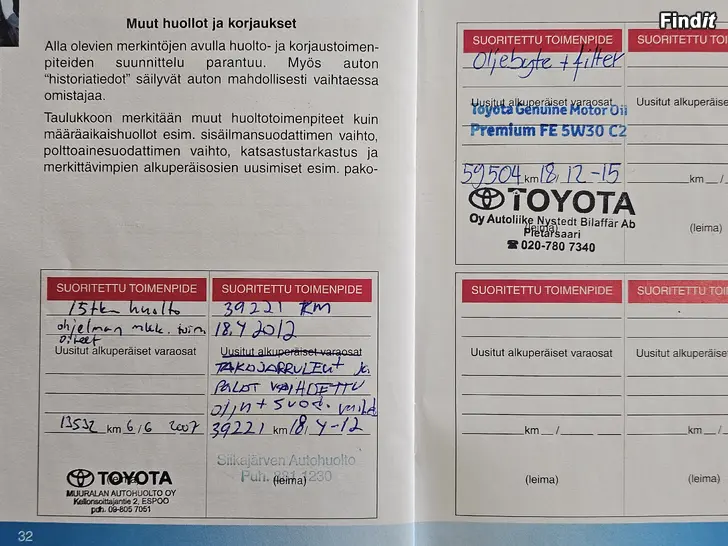 Findit
Muut huollot ja korjaukset
Alla olevien merkintöjen avulla huolto- ja korjaustoimen-
piteiden suunnittelu parantuu. Myös auton
"historiatiedot" säilyvät auton mahdollisesti vaihtaessa
omistajaa.
Taulukkoon merkitään muut huoltotoimenpiteet kuin
määräaikaishuollot esim. sisäilmansuodattimen vaihto,
polttoainesuodattimen vaihto, katsastustarkastus ja
merkittävimpien alkuperäisosien uusimiset esim. pako-
SUORITETTU TOIMENPIDE
15tkm huolto
ohjelman mkk. toim
piteet
Uusitut alkuperäiset varaosat
13532 km 6/6 2007
(leima)
TOYOTA
MUURALAN AUTOHUOLTO OY
Kellonsoittajantie 2, ESPOO
puh. 09-805 7051
SUORITETTU TOIMENPIDE
39221 KM
18.4 2012
Uusitut alkuperäiset varaosat
TAKAJARRULEVYT ja
PALAT VAIHDETTU
öljyn + suod. vaihto
39221 km 18.4-12
Siikajärven Autohuolto
Puh. 1230
(leima)
32
SUORITETTU TOIMENPIDE
Oljebyte + filter
Uusitut alkuperäiset varaosat
Toyota Genuine Motor Oil
Premium FE 5W30 C2
59504 km 18/12-15
TOYOTA
Oy Autoliike Nystedt Bilaffär Ab
(leima)
Pietarsaari
☎ 020-780 7340
SUORITETTU TOI
Uusitut alkuperäi
km /
(leima)
SUORITETTU TOIMENPIDE
Uusitut alkuperäiset varaosat
km /
(leima)
SUORITETTU TOI
Uusitut alkuperäi
km /
(leima)